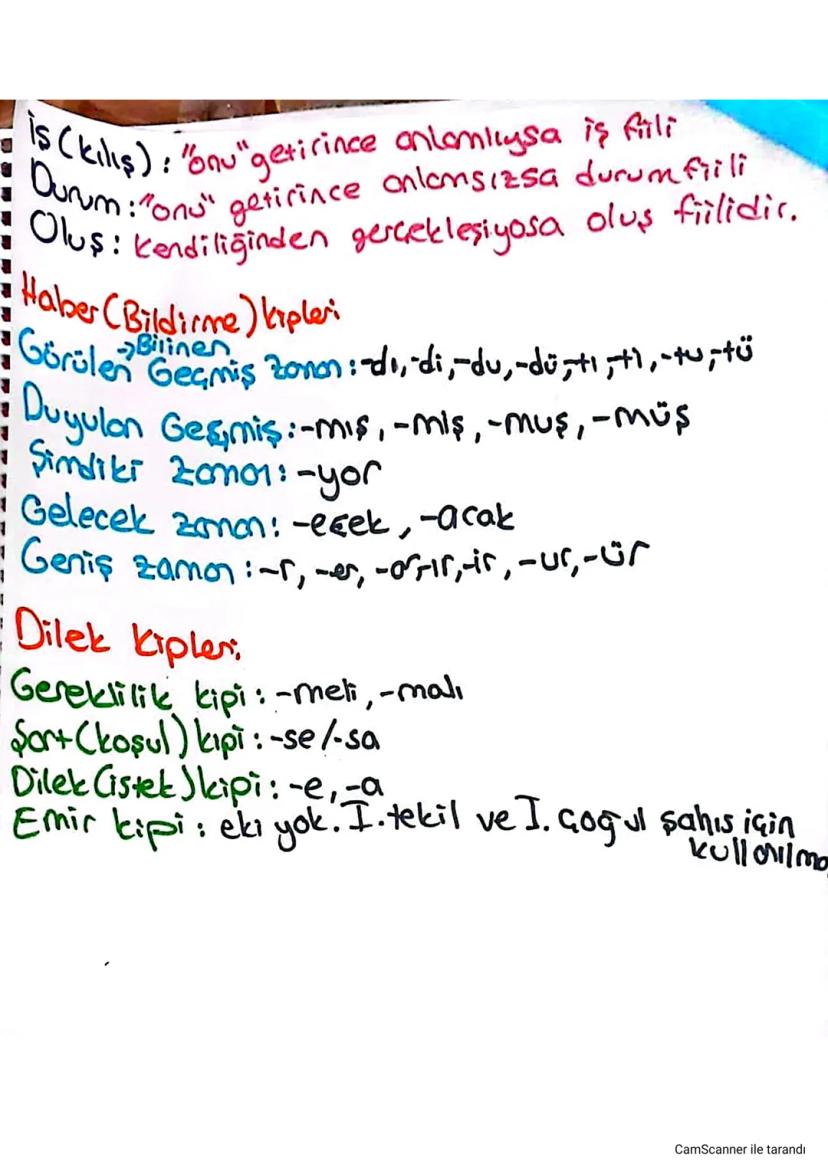 İş (kılış) : "onu" getirince anlamlıysa iş fiili
Durum : "onu" getirince anlamsızsa durum fiili
Oluş : kendiliğinden gerçekleşiyosa oluş fiilidir.
Haber (Bildirme) kipleri
→Bilinen
Görülen Geçmiş zaman : -dı, -di, -du, -dü, -tı, -ti, -tu, -tü
Duyulan Geçmiş : -mış, -miş, -muş, -müş
Şimdiki zaman : -yor
Gelecek zaman : -ecek, -acak
Geniş zaman : -r, -er, -ar, -ır, -ir, -ur, -ür
Dilek kipleri
Gereklilik kipi : -meli, -malı
Şart (koşul) kipi : -se /-sa
Dilek (istek) kipi : -e, -a
Emir kipi : eki yok. I. tekil ve I. çoğul şahıs için
kullanılma
CamScanner ile tarandı